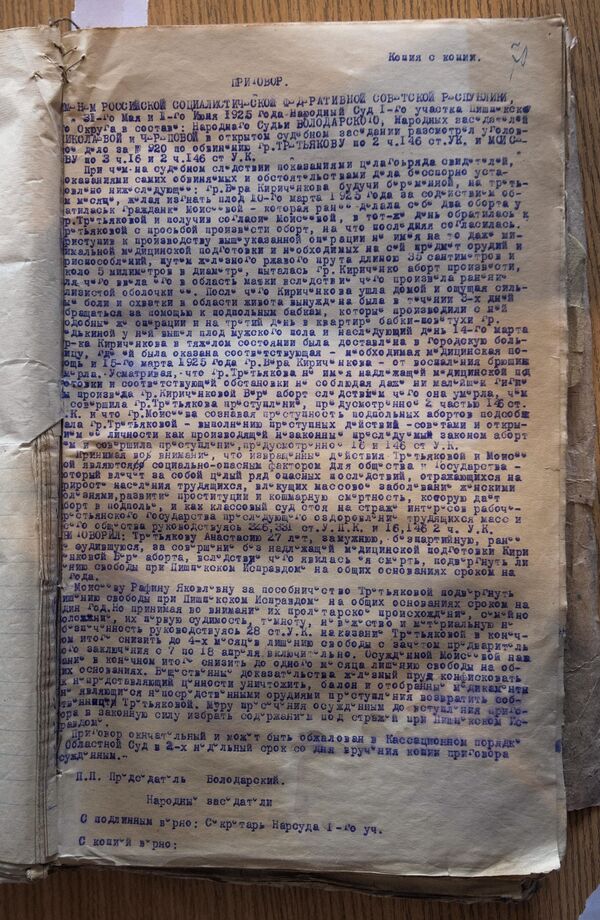 70
Копия с копии.
ПРИГОВОР.
РОССИЙСКОЙ СОЦИАЛИСТИЧЕСКОЙ ФЕДЕРАТИВНОЙ СОВЕТСКОЙ РЕСПУБЛИКИ,
31-го Мая и 1-го Июня 1925 года Народный Суд 1-го участка Пишпекско
го Округа в составе: Народного Судьи ВОЛОДАРСКОГО, Народных заседателей
НИКОЛАЕВОЙ и ЧЕРЕПОВОЙ в открытом судебном заседании рассмотрел уголов-
ное дело за № 920 по обвинению гр.ТРЕТЬЯКОВУ по 2 ч.146 ст.УК. и МОИСЕ-
ЕВУ по 3 ч.16 и 2 ч.146 ст У.К.
При чем на судебном следствии показаниями целого ряда свидетелей,
показаниями самих обвиняемых и обстоятельствами дела бесспорно уста-
новлено нижеследующее: гр.Вера Кириченкова будучи беременной, на треть-
ем месяце, желая изгнать плод 10-го марта 1925 года за содействием об-
ратилась к гражданке Моисеевой которая ранее делала себе два аборта у
гр.Третьяковой и получив согласие Моисеевой, в тот-же день обратилась к
Третьяковой с просьбой произвести аборт, на что последняя согласилась.
Приступив к производству вышеуказанной операции не имея на то даже ми-
нимальной медицинской подготовки и необходимых на сей предмет орудий и
приспособлений, путем железного ржавого прута длиной 35 сантиметров и
около 5 милиметров в диаметре, пыталась гр. Кириченко аборт произвести,
для чего ввела его в область матки вследствие чего произвела ранение
слизистой оболочки ее. После чего Кириченкова ушла домой и ощущая силь-
ные боли и схватки в области живота вынуждена была в течении 3-х дней
обращаться за помощью к подпольным бабкам, которые производили с ней
подобные же операции и на третий день в квартире бабки-повитухи гр.
у ней вышел плод мужского пола и наследующий день 14-го марта
гр-ка Кириченкова в тяжелом состоянии была доставлена в городскую боль-
ницу, где ей была оказана соответствующая - необходимая медицинская по-
мощь и 15-го марта 1925 года гр.Вера Кириченкова - от воспаления брюшины
умерла. Усматривая, что гр.Третьякова не имея надлежащей медицинской под
готовки и соответствующей обстановки не соблюдая даже и малейшей гигие-
ны произвела гр.Кириченковой Вере аборт следствием чего она умерла, чем
совершила гр.Третьякова преступление, предусмотренное 2 частью 146 ст.
У.К. и что гр.Моисеева сознавая преступность подпольных абортов пособ
ла гр.Третьяковой - выполнению преступных действий -советами и откры-
тием ее личности как производящей незаконные преследуемые законом аборт
чем и совершила преступление, предусмотренное 16 и 146 ст У.К.
Принимая во внимание, что извращенные действия Третьяковой и Моисее-
вой являются социально-опасным фактором для общества и Государства -
который влечет за собой целый ряд опасных последствий, отражающихся на
прирост населения трудящихся, влекущих массовое заболевание женскими
болезнями,развитие проституции и кошмарную смертность, которую дает
аборт в подполье, и как классовый суд стоя на страже интересов рабоче-
крестьянского Государства преследующего оздоровление трудящихся масс и
всего общества руководствуясь 326,331 ст.У.П.К. и 16,146 2 ч. У.К.
ПРИГОВОРИЛ: Третьякову Анастасию 27 лет, замужнюю, беспартийную, ранее
не судившуюся, за совершение без надлежащей медицинской подготовки Кири
ченковой Вере аборта, вследствие чего явилась ея смерть, подвергнуть ли
шению свободы при Пишпекском Исправдоме на общих основаниях сроком на
года.
Моисееву Рафину Яковлевну за пособничество Третьяковой подвергнуть
лишению свободы при Пишпекском Исправдоме на общих основаниях сроком на
один год.Но принимая во внимание их пролетарское происхождение, семейное
положение, их первую судимость, темноту, невежество и материальную не-
обеспеченность руководствуясь 28 ст.У.К. наказание Третьяковой в конеч-
ном итоге снизить до 4-х месяцев лишению свободы с зачетом предваритель
ного заключения с 7 по 18 апреля включительно. Осужденной Моисеевой нака
зание в конечном итоге снизить до одного месяца лишению свободы на об-
щих основаниях. Вещественные доказательства железный прут конфисковать
как непредставляющий ценности уничтожить, балон и отобранные медикаменты
не являющиеся непосредственными орудиями преступления возвратить собс-
твеннице Третьяковой. Меру пресечения осужденным до вступления пригово-
ра в законную силу избрать содержание под стражей при Пишпекском Ис-
правдоме.
Приговор окнчательный и может быть обжалован в Кассационном порядке
Областной Суд в 2-х недельный срок со дня вручения копии приговора
осужденным.-
П.П. Председатель Володарский.
Народные заседатели
С подлинным верно: Секретарь Нарсуда 1-го уч.
С копией верно: